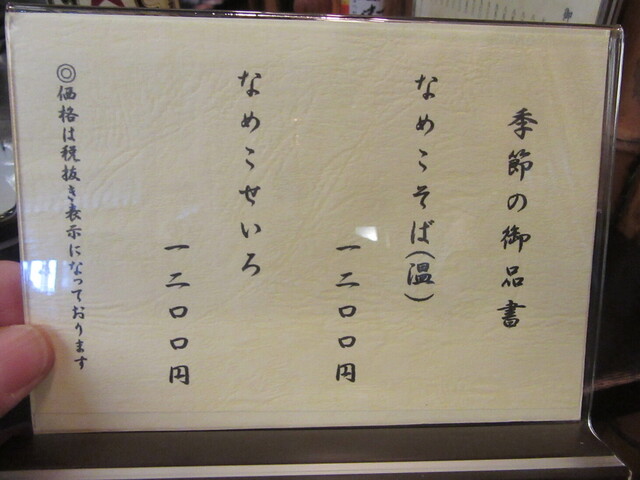 季節の御品書
なめこそば(温)
一二〇〇円
なめこせいろ
一二〇〇円
◎価格は税抜き表示になっております